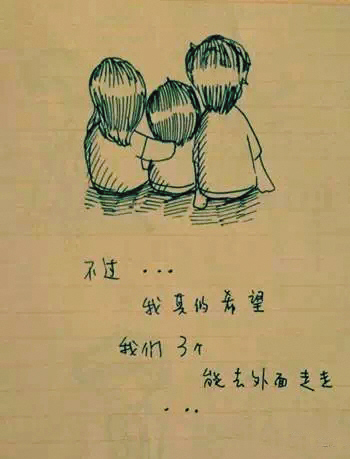 不过 ...
我真的希望
我们3个
能去外面走走
...